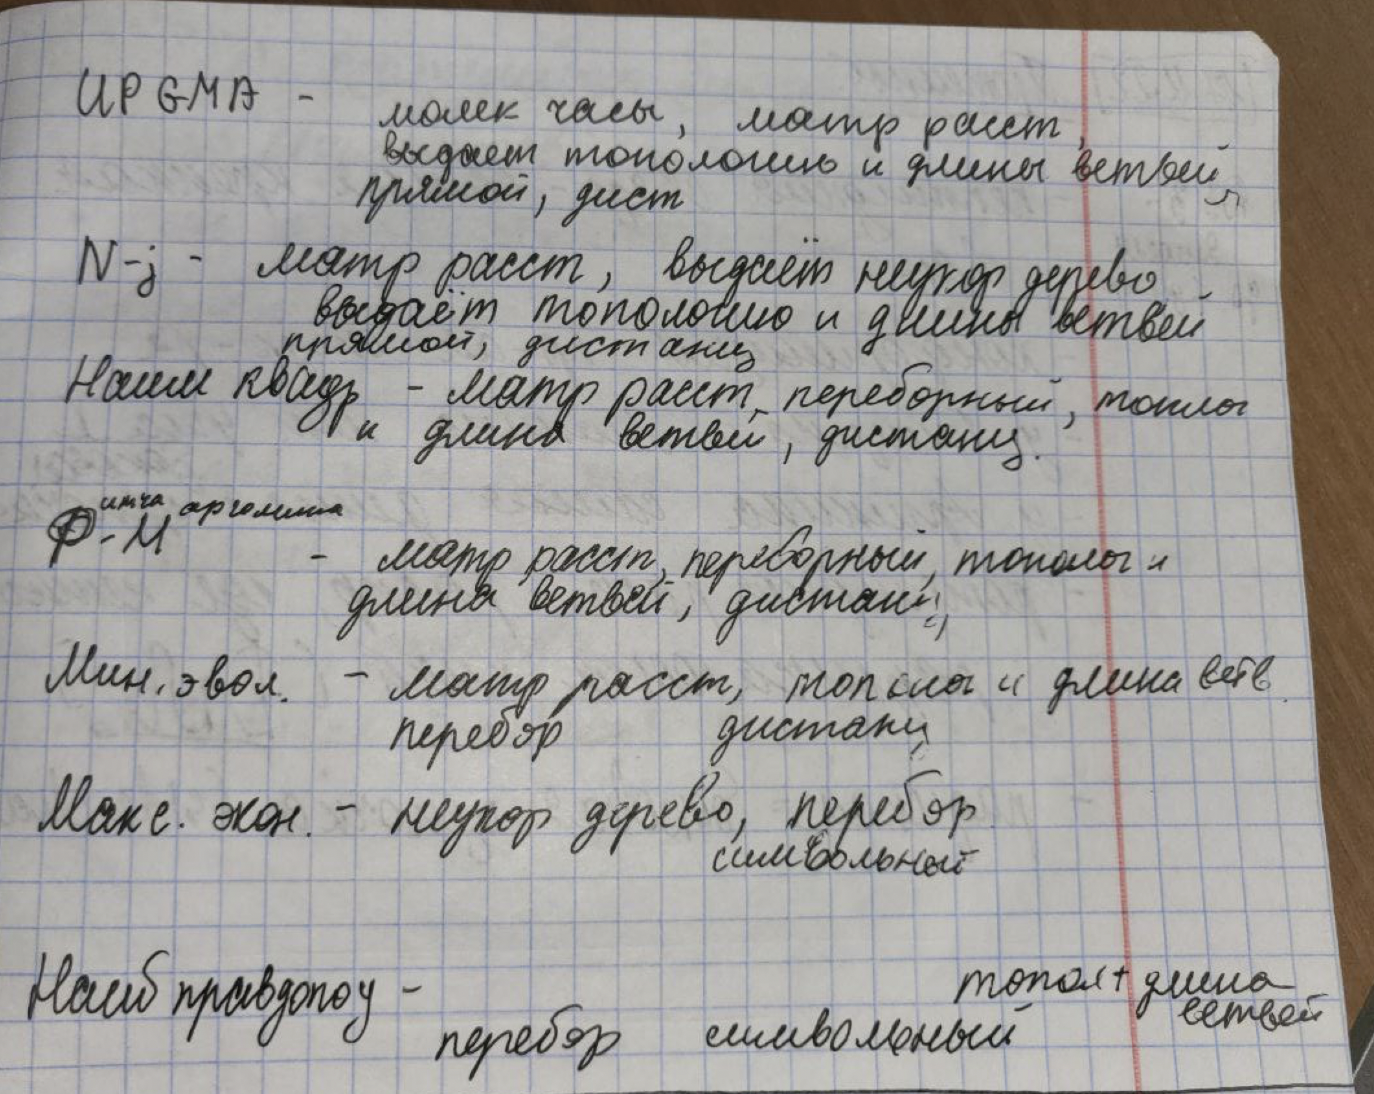 UPGMA -
молек часы, матр расст,
выдает топологию и длины ветвей,
прямой, дист
N-j - матр расст, выдаёт неукор дерево
выдаёт топологию и длины ветвей
прямой, дистанц
Наим квадр - матр расст, переборный, тополог
и длина ветвей, дистанц.
Ф-М итча арголиша
- матр расст, переборный, тополог и
длина ветвей, дистанц
Мин. эвол. - матр расст, тополог и длина ветв
перебор дистанц
Макс. экон. - неукор дерево, перебор
символьный
Наиб правдопод - топол + длина
ветвей
перебор символьный